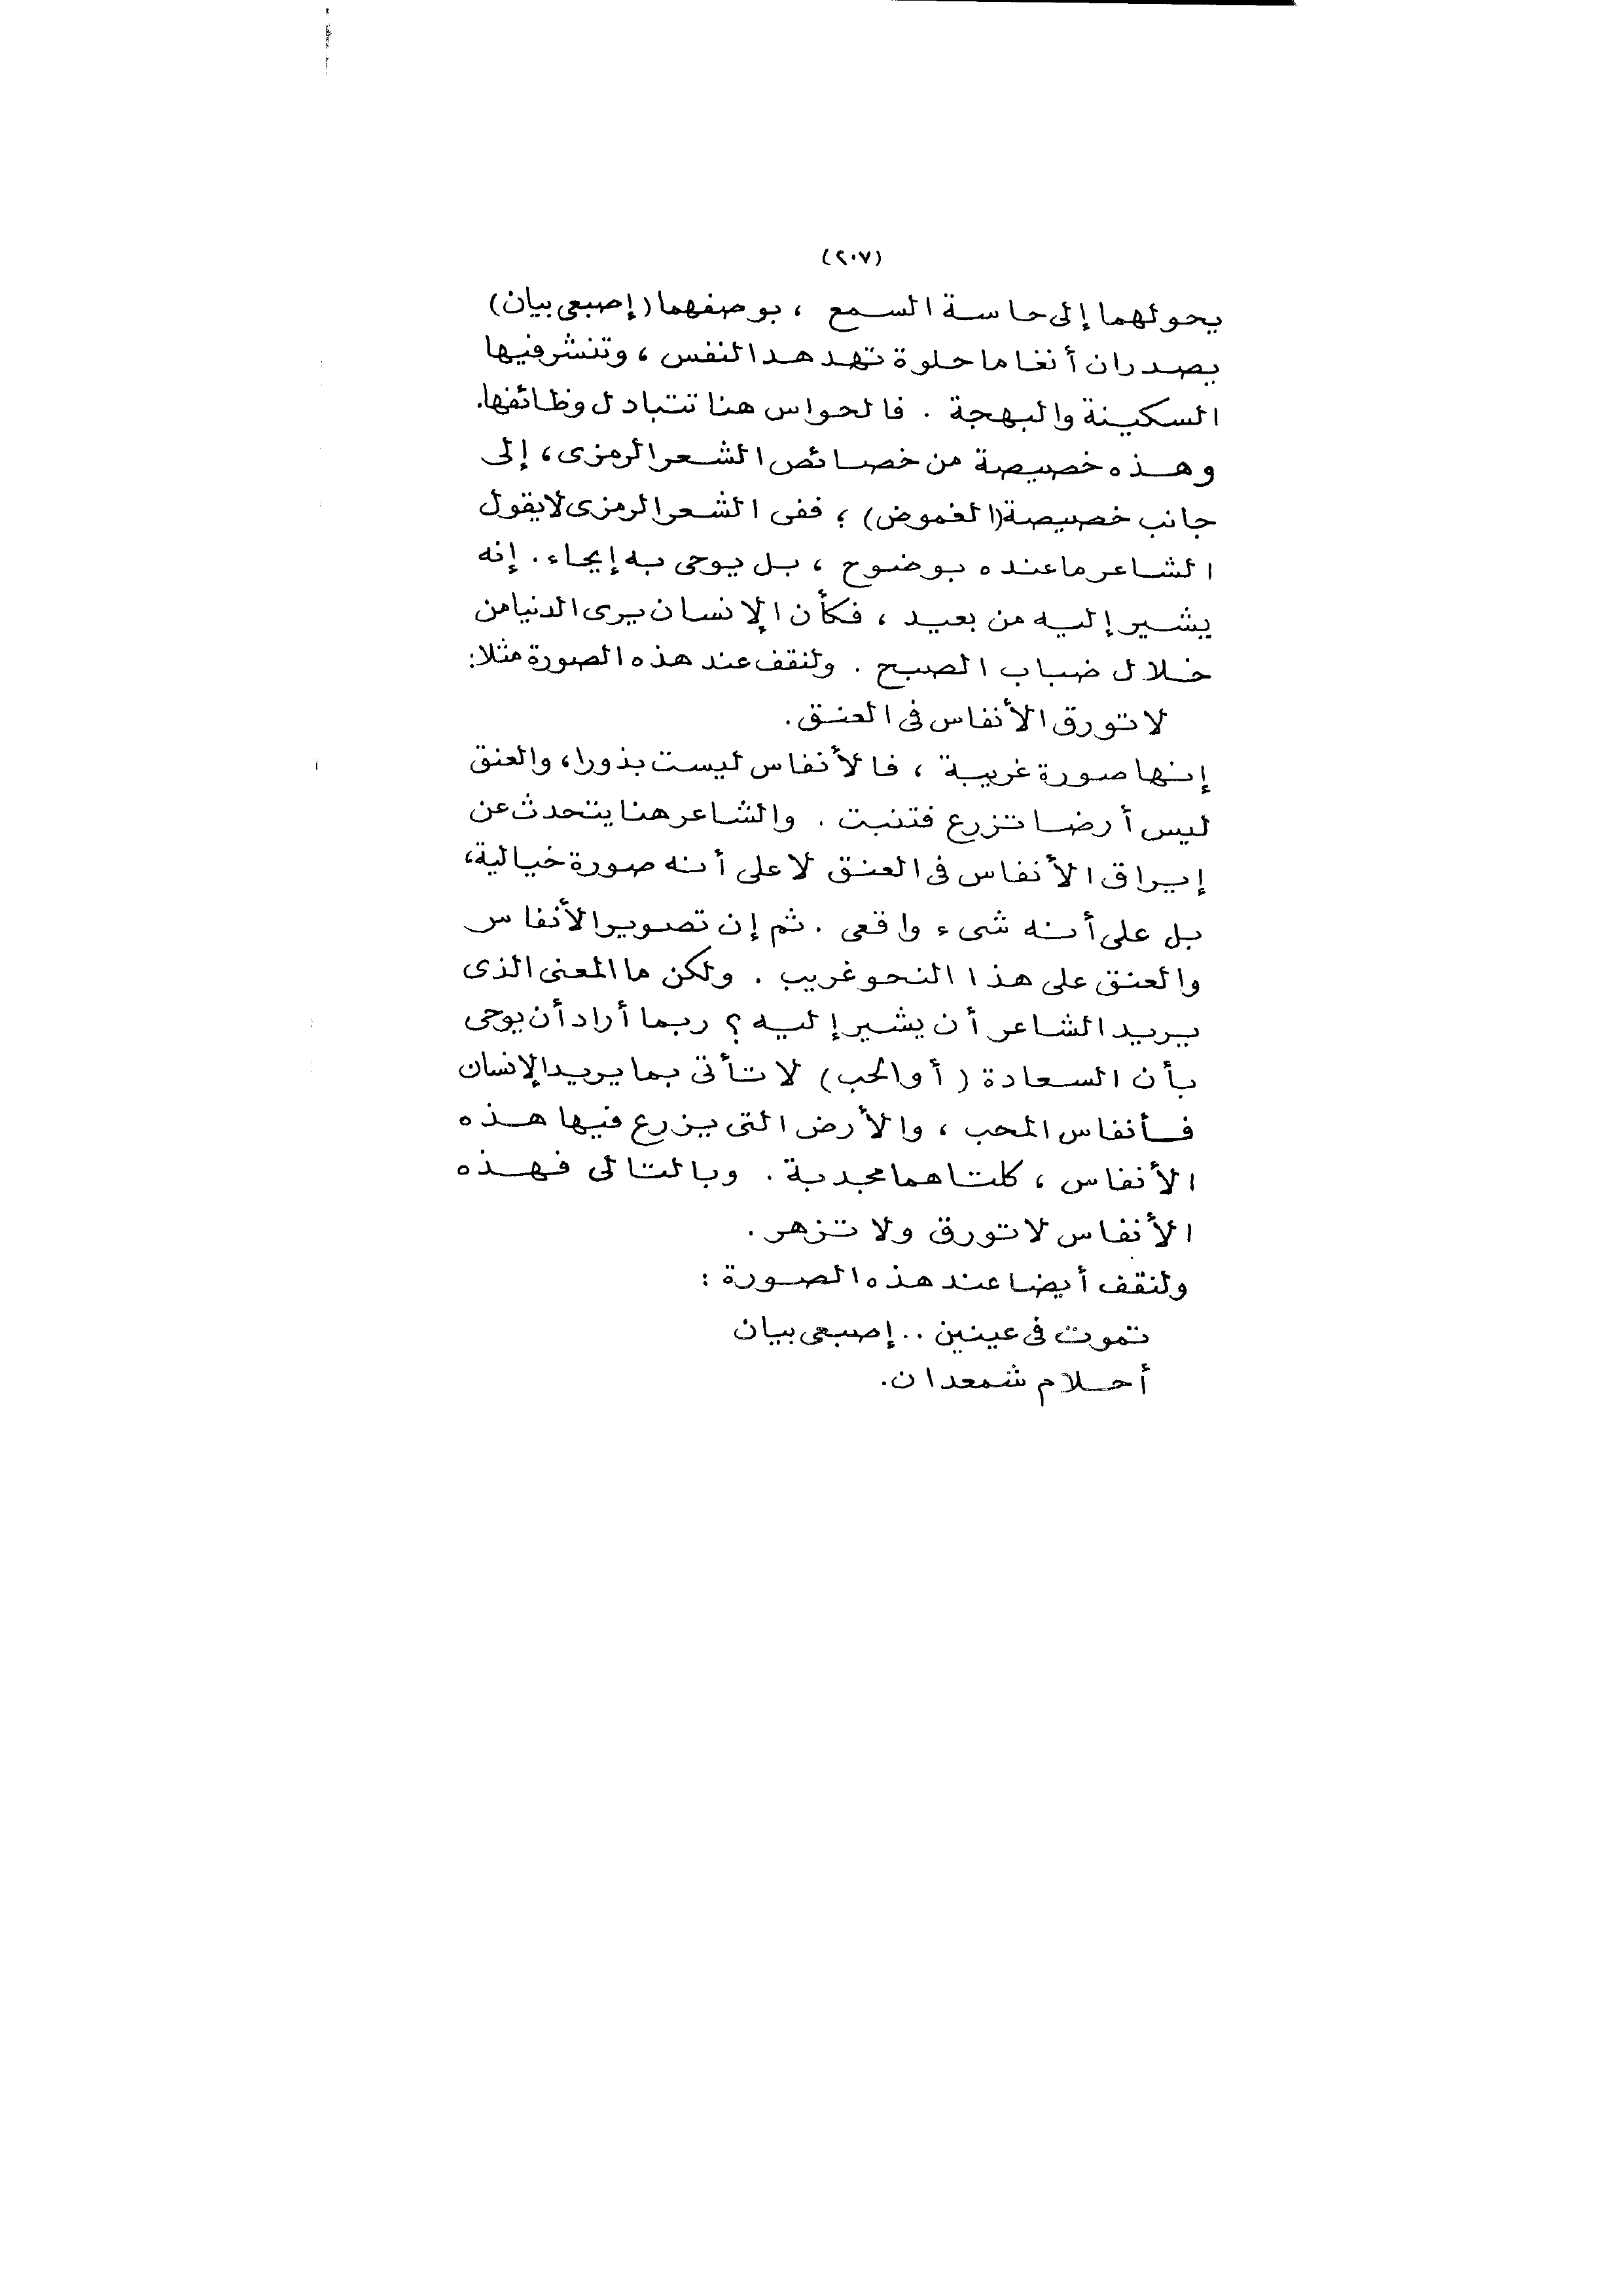 (٢٠٧)
يحولهما إلى حاسة السمع ، بوصفهما (إصبعى بيان)
يصدران أنغاما حلوة تهدهد النفس ، وتنشر فيها
السكينة والبهجة . فالحواس هنا تتبادل وظائفها.
وهذه خصيصة من خصائص الشعر الرمزى ، إلى
جانب خصيصة (الغموض) ؛ ففى الشعر الرمزى لا يقول
الشاعر ما عنده بوضوح ، بل يوحى به إيحاء . إنه
يشير إليه من بعيد ، فكأن الإنسان يرى الدنيا من
خلال ضباب الصبح . ولنقف عند هذه الصورة مثلا:
لا تورق الأنفاس فى العنق.
إنها صورة غريبة ، فالأنفاس ليست بذورا، والعنق
ليس أرضا تزرع فتنبت . والشاعر هنا يتحدث عن
إيراق الأنفاس فى العنق لا على أنه صورة خيالية،
بل على أنه شىء واقعى . ثم إن تصوير الأنفاس
والعنق على هذا النحو غريب . ولكن ما المعنى الذى
يريد الشاعر أن يشير إليه ؟ ربما أراد أن يوحى
بأن السعادة (أو الحب) لا تأتى بما يريد الإنسان
فأنفاس المحب ، والأرض التى يزرع فيها هذه
الأنفاس ، كلتاهما مجدبة . وبالتالى فهذه
الأنفاس لا تورق ولا تزهر .
ولنقف أيضا عند هذه الصورة :
تموت فى عينين .. إصبعى بيان
أحلام شمعدان.